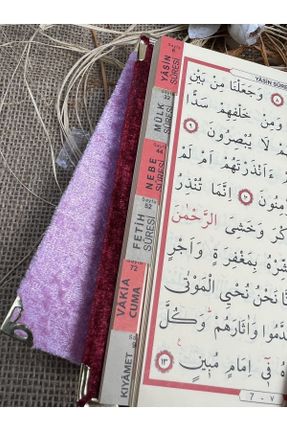 YÂSİN SÛRE
YÂSİN
SÛRESİ
MÜLK
SÛRESİ
NEBE
SÛRESİ
Sayfa
52
FETİH
SÛRESİ
Sayfa
72
VÂKIA
CUMA
KIYÂMET
وَجَعَلْنَا مِنْ بَيْنِ
وَمِنْ خَلْفِهِمْ سَدًّا
لَا يُبْصِرُونَ ٩
ءَاَنْذَرْتَهُمْ اَمْ لَمْ
١٠ اِنَّمَا تُنْذِرُ
وَخَشِىَ الرَّحْمٰنَ
بِمَغْفِرَةٍ وَاَجْرٍ
نَحْنُ نُحْيِ الْمَوْتٰى
وَاٰثَارَهُمْ وَكُلَّ
فٖٓى اِمَامٍ مُبٖينٍ ١٢
7 - ٧